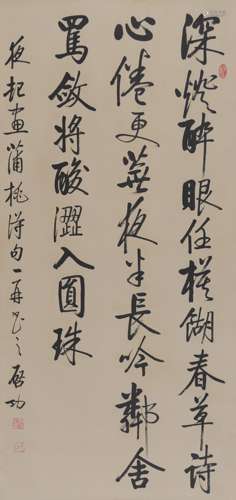 深灯醉眼任模糊春草诗
心倦更芜夜半长吟邻舍
骂敛将酸涩入圆珠
夜起画蒲桃得句一再书之启功